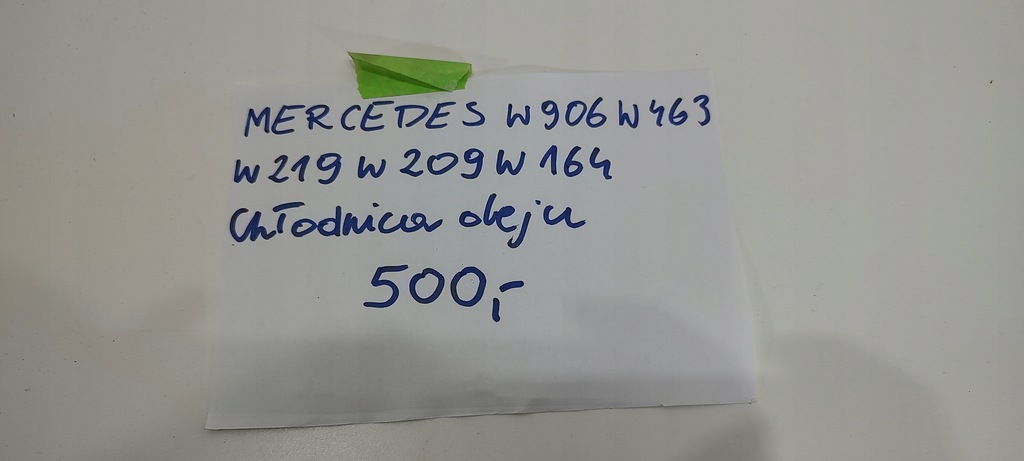 MERCEDES W906 W463
W219 W209 W164
Chłodnica oleju
500,-